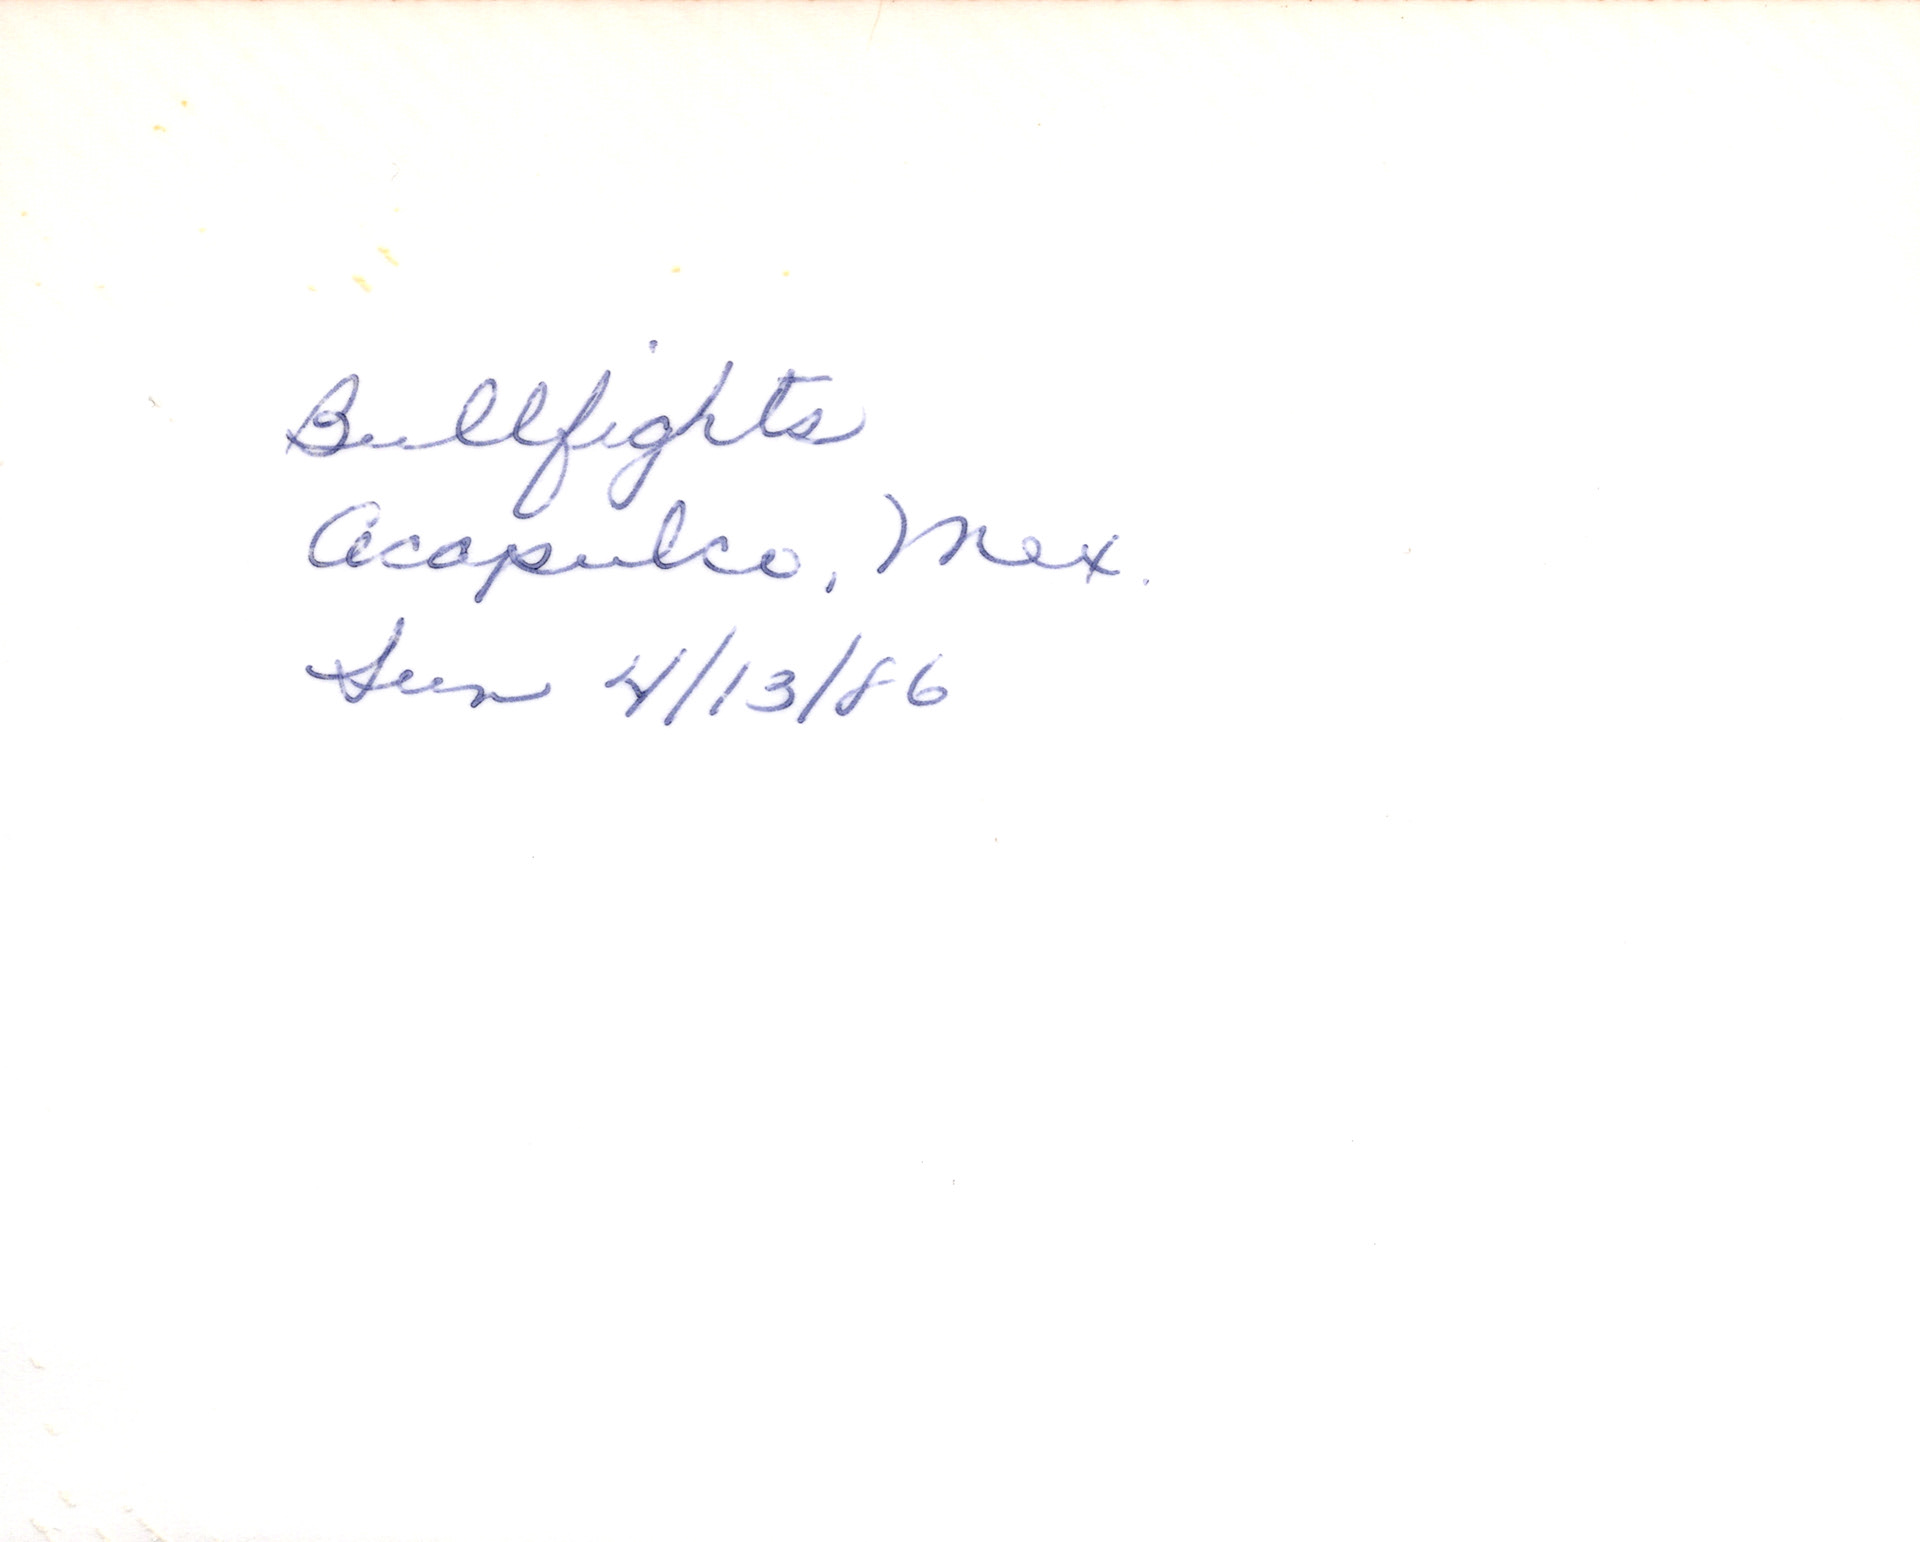 Bullfights
Acapulco, Mex.
Sun 4/13/86